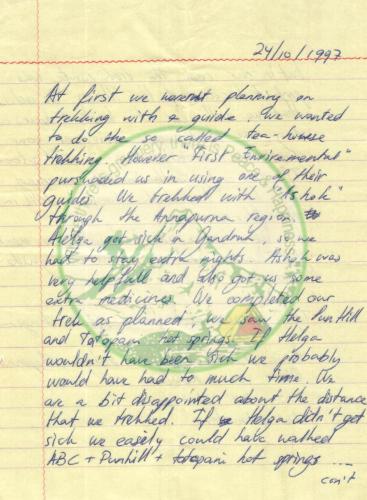 24/10/1997
At first we werent planning on
trekking with a guide. We wanted
to do the so called tea-house
trekking. However "First Enviremental"
pursueded us in using one of their
guides. We trekked with "Ashok"
through the Annapurna region.
Helga got sick in Gandruk, so we
had to stay extra nights. Ashok was
very helpfull and also got us some
extra medicines. We completed our
trek as planned, we saw the Punhill
and Tatopani hot springs. If Helga
wouldn't have been sick we probably
would have had to much time. We
are a bit disappointed about the distance
that we trekked. If Helga didn't get
sick we easily could have walked
ABC + Punhill + tatopani hot springs ...
con't